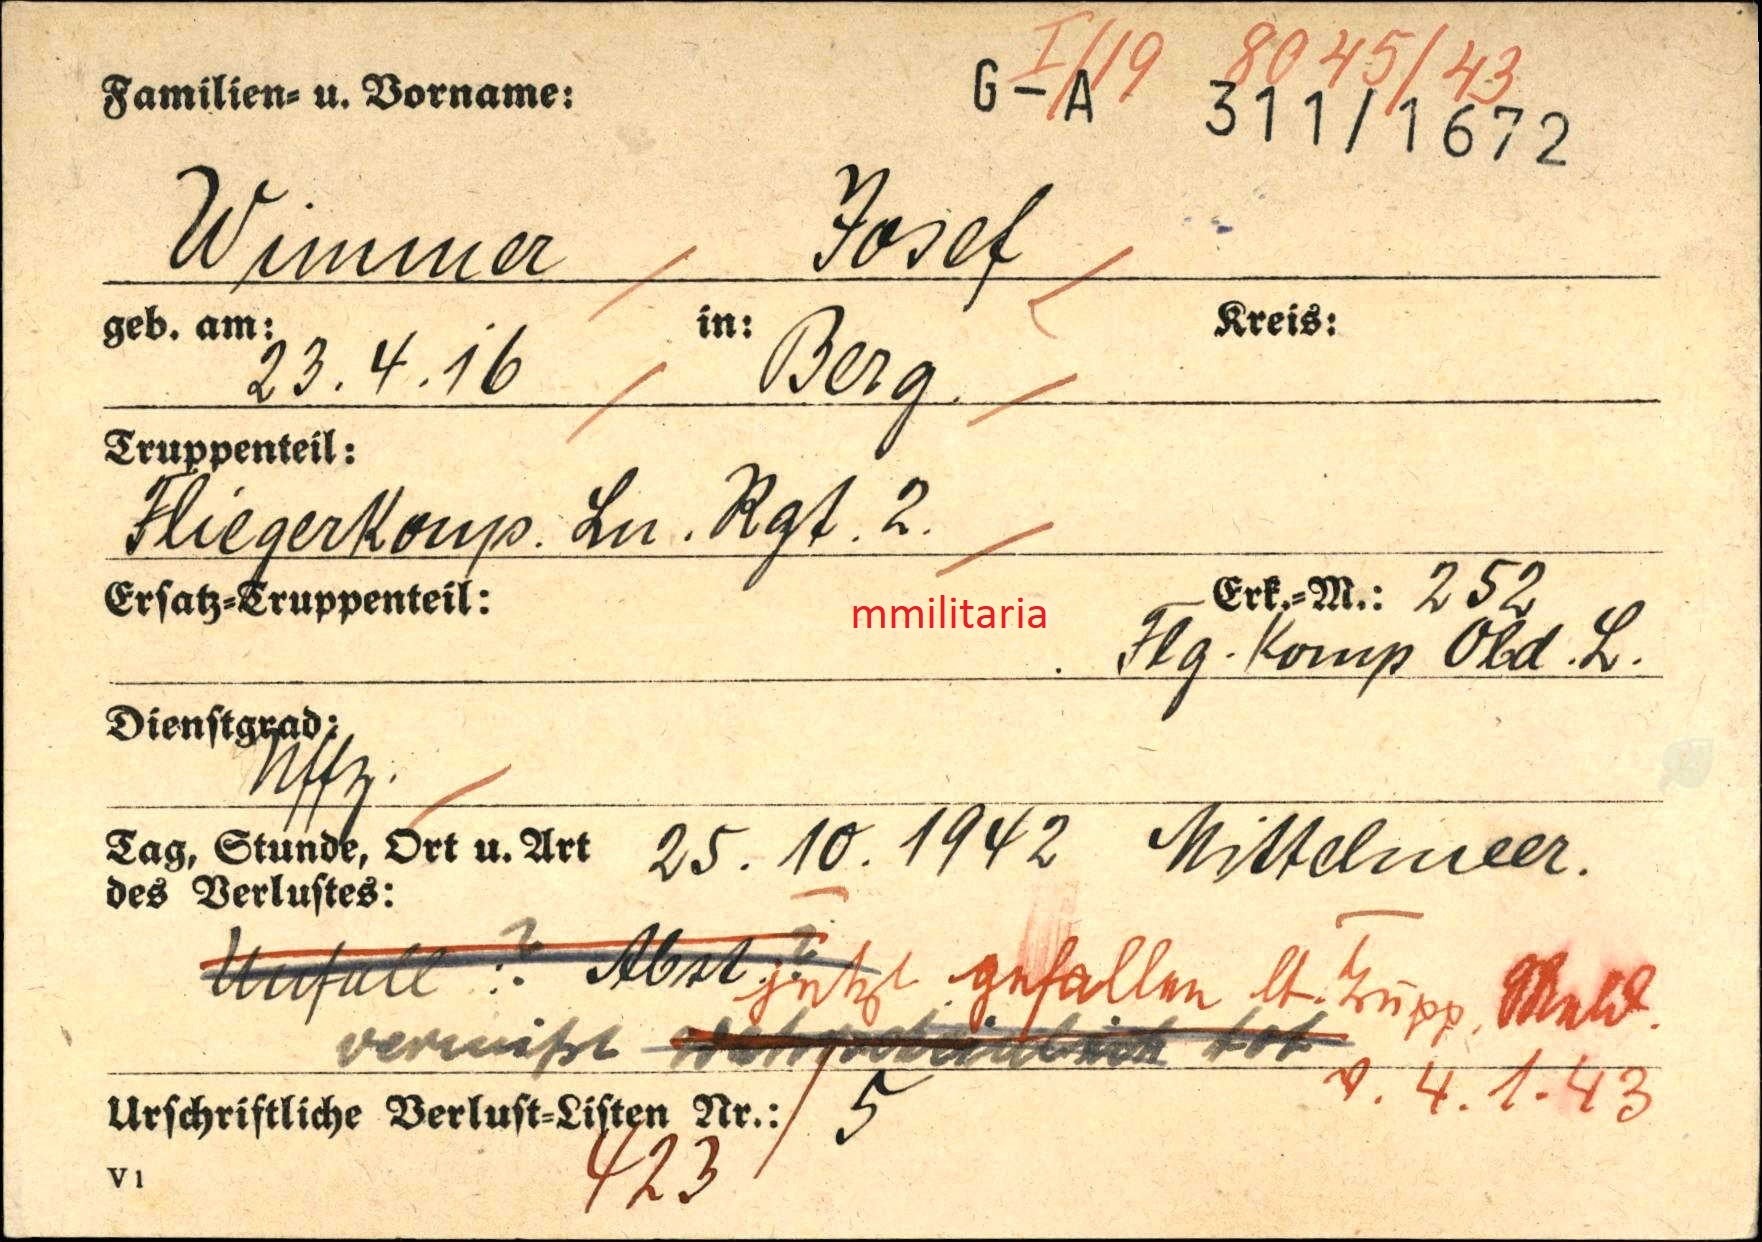 I/19 8045/43
Familien- u. Vorname: G-A 311/1672
Wimmer Josef
geb. am: in: Kreis:
23.4.16 Berg.
Truppenteil:
Fliegerkomp. Ln. Rgt. 2.
Ersatz-Truppenteil: Erk.-M.: 252
mmilitaria
Flg. Komp Old. L.
Dienstgrad:
Uffz.
Tag, Stunde, Ort u. Art 25. 10. 1942 Mittelmeer.
des Verlustes:
Unfall ? Abst. ? jetzt gefallen lt. Trupp. Meld.
vermißt wahrscheinlich tot v. 4.1.43
Urschriftliche Verlust-Listen Nr.: 5
423
V 1